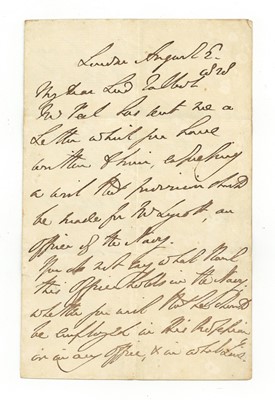 London August 8.
1828
My Dear Lord Talbot
Mr Peel has sent me a
Letter which you have
written to him, expressing
a wish that provision should
be made for Mr an
Officer of the Navy.
You do not say what Rank
this Officer holds in the Navy.
whether you wish that he should
be employed in his Profession
or in any Office, & in what